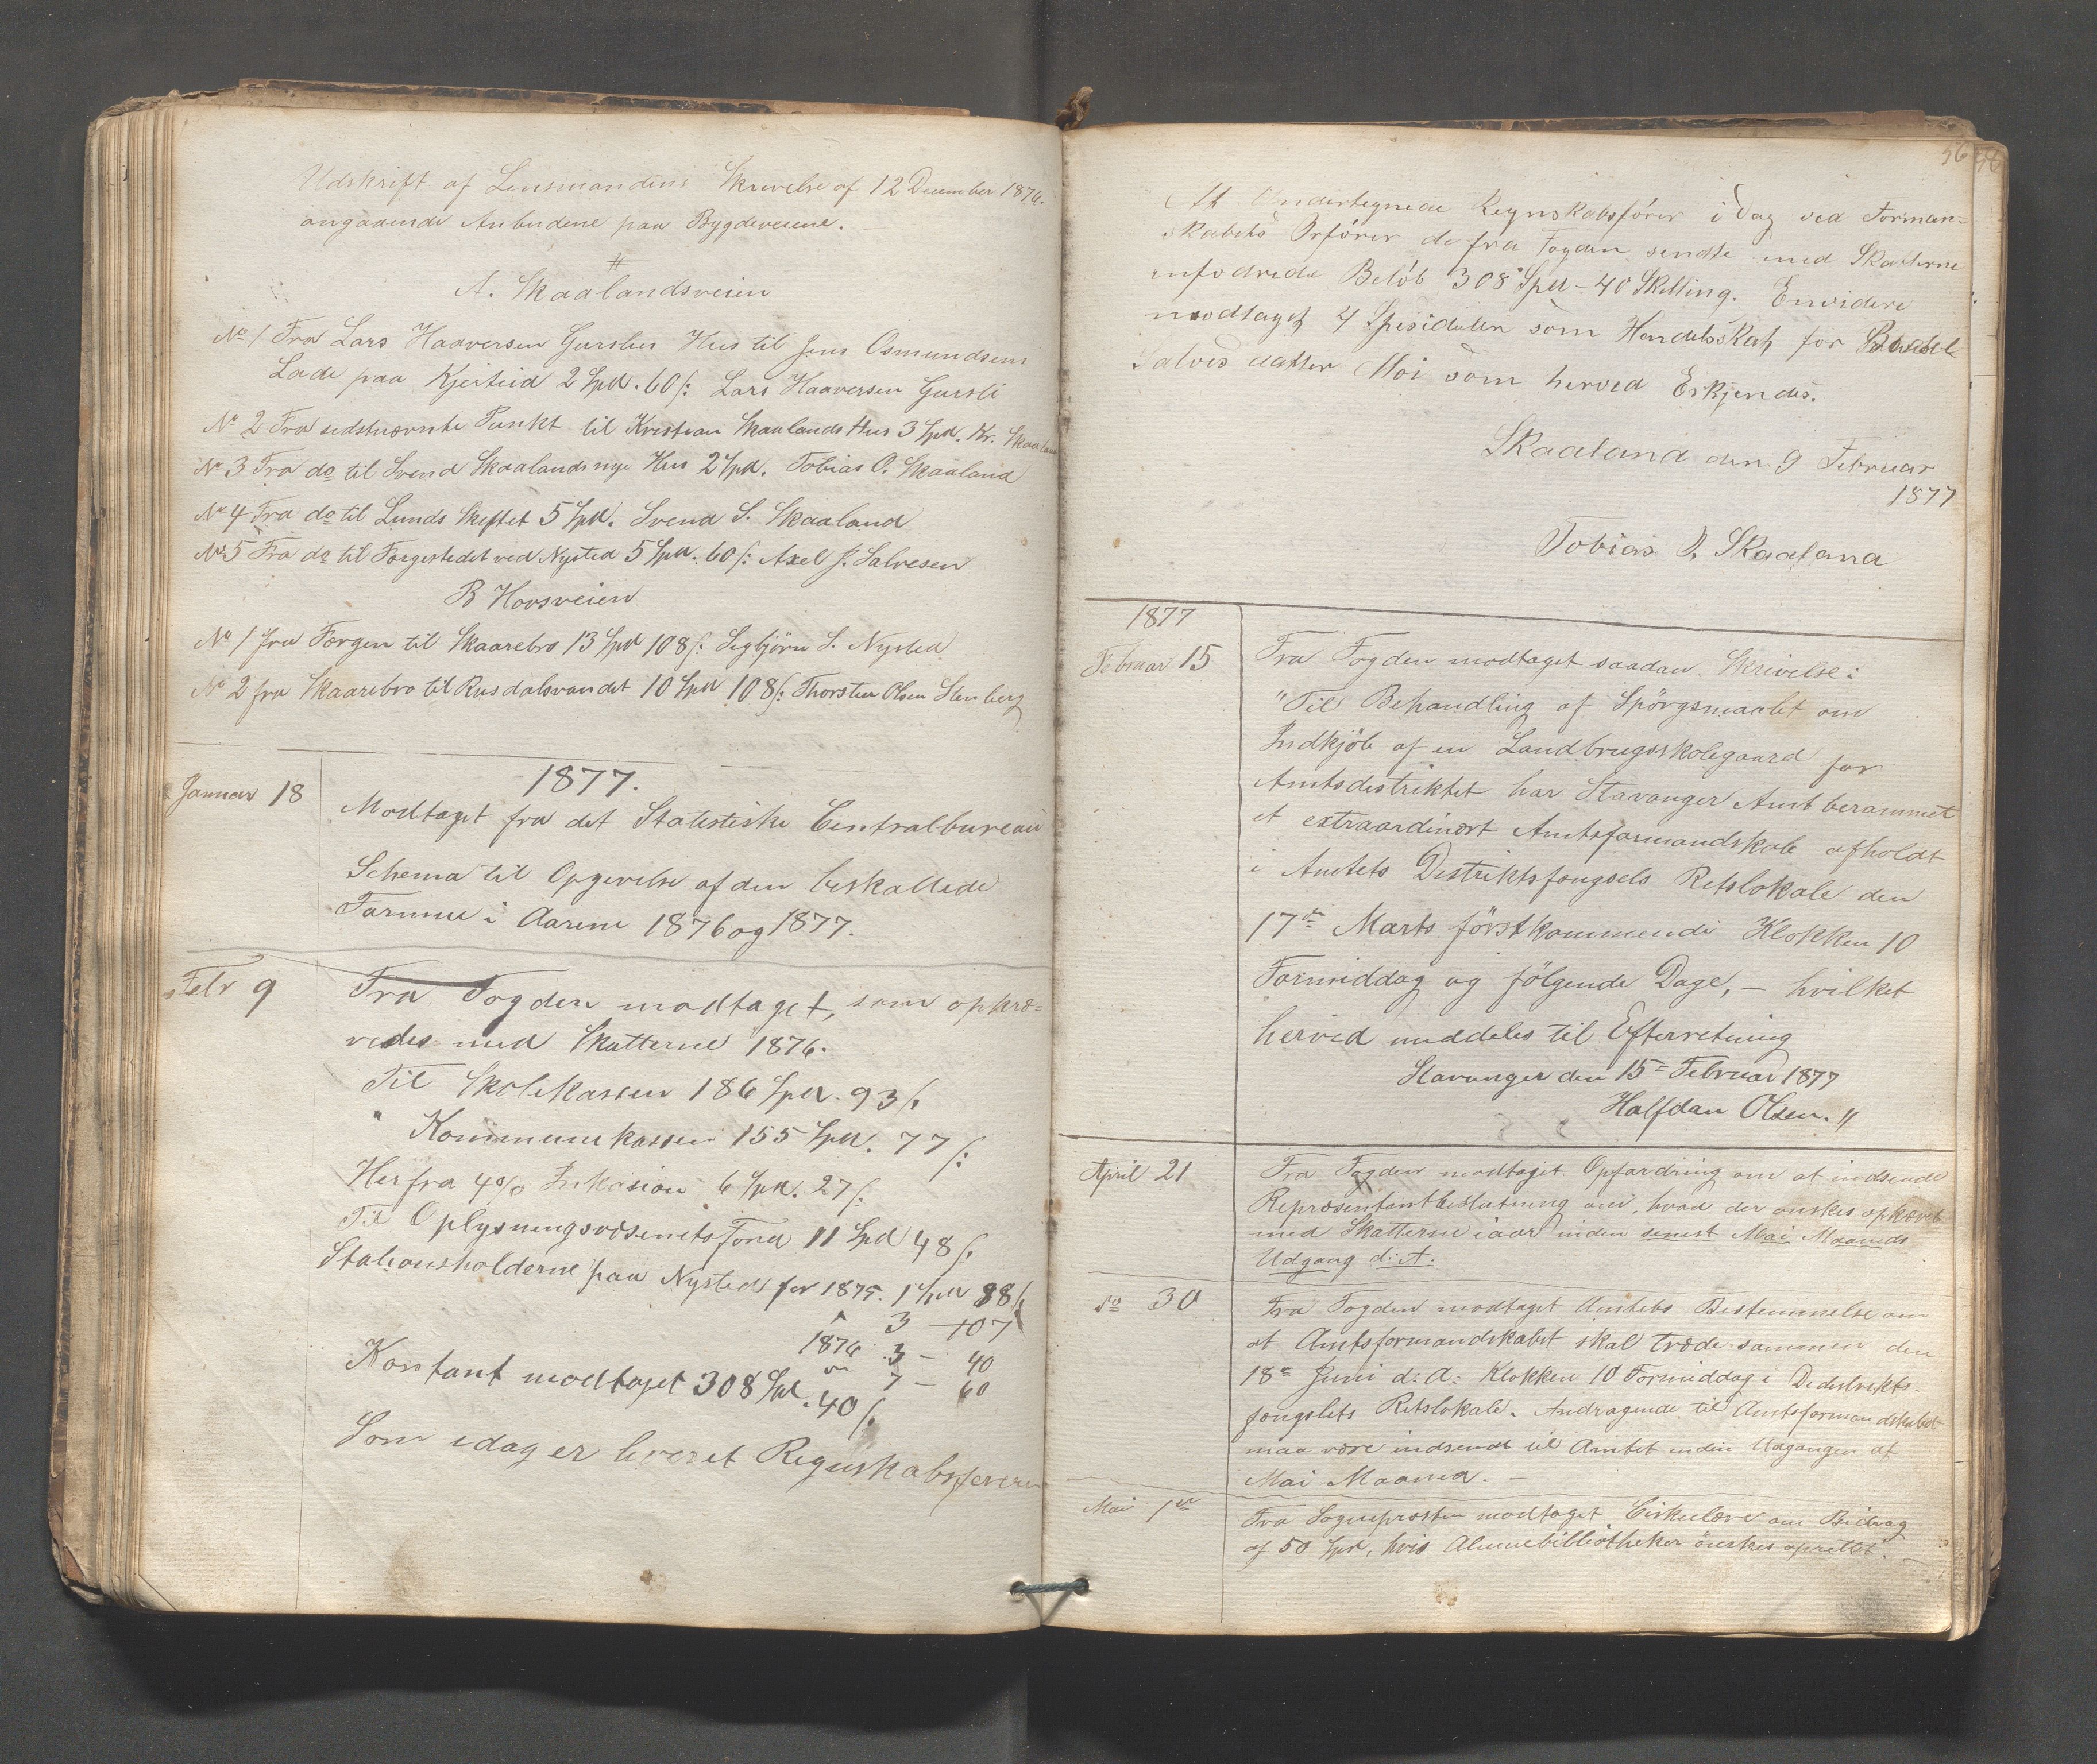 Udskrift af Lensmandens Skrivelse af 12 December 1876.
angaaende Anbudene paa Bygdeveiene.
A. Skaalandsveien
No 1 Fra Lars Haaversen Gurslies Hus til Jens Osmundsens
Lade paa Kjerteid 2 Spd. 60 s: Lars Haaversen Gursli
No 2 Fra sidstnævnte Punkt til Kristian Skaalands Hus 3 Spd. Kr. Skaaland
No 3 Fra do til Svend Skaalands nye Hus 2 Spd. Tobias O. Skaaland
No 4 Fra do til Lunds Skiftet 5 Spd. Svend S. Skaaland
No 5 Fra do til Færgestedet ved Nysted 5 Spd. 60 s: Axel J. Salvesen
B Hovsveien
No 1 fra Færgen til Skaarebro 13 Spd 108 s: Segbjörn S. Nysted
No 2 fra Skaarebro til Rusdalsvandet 10 Spd 108 s: Thorsten Olsen Stenberg
1877.
Januar 18
Modtaget fra det Statistiske Centralbureau
Schema til Opgivelse af den beskattede
Formue i Aarene 1876 og 1877.
Febr 9
Fra Fogden modtaget, som opkræ=
vedes med Skatterne 1876.
Til Skolekassen 186 Spd. 93 s.
" Kommunekassen 155 Spd. 77 s:
Herfra 4% Inkasion 6 Spd. 27 s:
Til Oplysningsvæsenets Fond 11 Spd 48 s.
Stationsholderne paa Nysted for 1875. 1 Spd 88 s
" 3 - 107
1876 3 - 40
7 - 60
Kontant modtaget 308 Spd. 40 s.
Som idag er leveret Regnskabsføreren
56
At Undertegnede Regnskabsförer i Dag ved Forman=
skabets Orförer de fra Fogden sendte med Skatterne
infodrede Belöb 308 Spd - 40 Skilling. Envidere
modtaget 4 Spesidaler som Handelsskat for
Salvesdatter Moi som herved Erkjendes.
Skaaland den 9 Februar
1877
Tobias O. Skaaland
1877
Februar 15
Fra Fogden modtaget saadan Skrivelse:
"Til Behandling af Spörgsmaalet om
Indkjöb af en Landbrugsskolegaard for
Amtsdistriktet har Stavanger Amt berammet
et extraordinært Amtsformandskab afholdt
i Amtets Distriktsfængsels Retslokale den
17de Marts förstkommende Klokken 10
Formiddag og fölgende Dage, - hvilket
herved meddeles til Efterretning
Stavanger den 15 Februar 1877
Halfdan Olsen."
April 21
Fra Fogden modtaget Opfordring om at indsende
Repræsentantbeslutning om, hvad der önskes opkrævet
med Skatterne iaar inden senest Mai Maaneds
Udgang d: A.
do 30
Fra Fogden modtaget Amtets Bestemmelse om
at Amtsformandskabet skal træde sammen den
18de Juni d: A: Klokken 10 Formiddag i Dedistrikts-
fængslets Retslokale. Andragende til Amtsformandskabet
maa være indsendt til Amtet inden Udgangen af
Mai Maaned. -
Mai 1ste
Fra Sognepræsten modtaget Cirkulære om Bidrag
af 50 Spd, hvis Almuebibliotheker önskes oprettet.